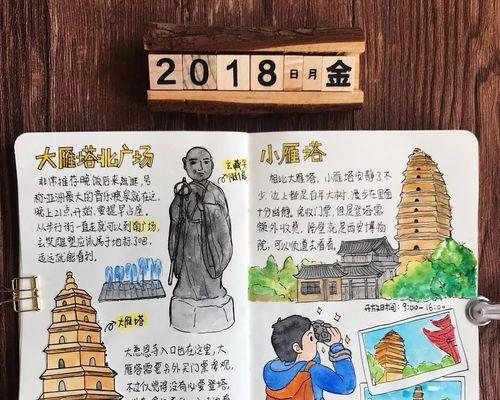 2018日月金
大雁塔北广场
非常推荐晚饭后来逛逛,号
称亚洲最大的音乐喷泉就在这,
晚上21点开始,需提早占座。
从步行街一直走就可以到南广场,
玄奘雕塑应该属于地标了吧,
远远优能看到。
玄奘
雕像
大雁塔
大慈恩寺入口也在这里,大
雁塔需要另外买门票参观,
不过似觉得没有必要登塔,
小雁塔
相比大雁塔,小雁塔安静了不
少,边上都是百年大树,漫步在里面
十分幽静,免收门票,但是登塔需
额外收费,隔座就是西安博物
院,可以顺道去看看。
开放时间:9:00-16:00